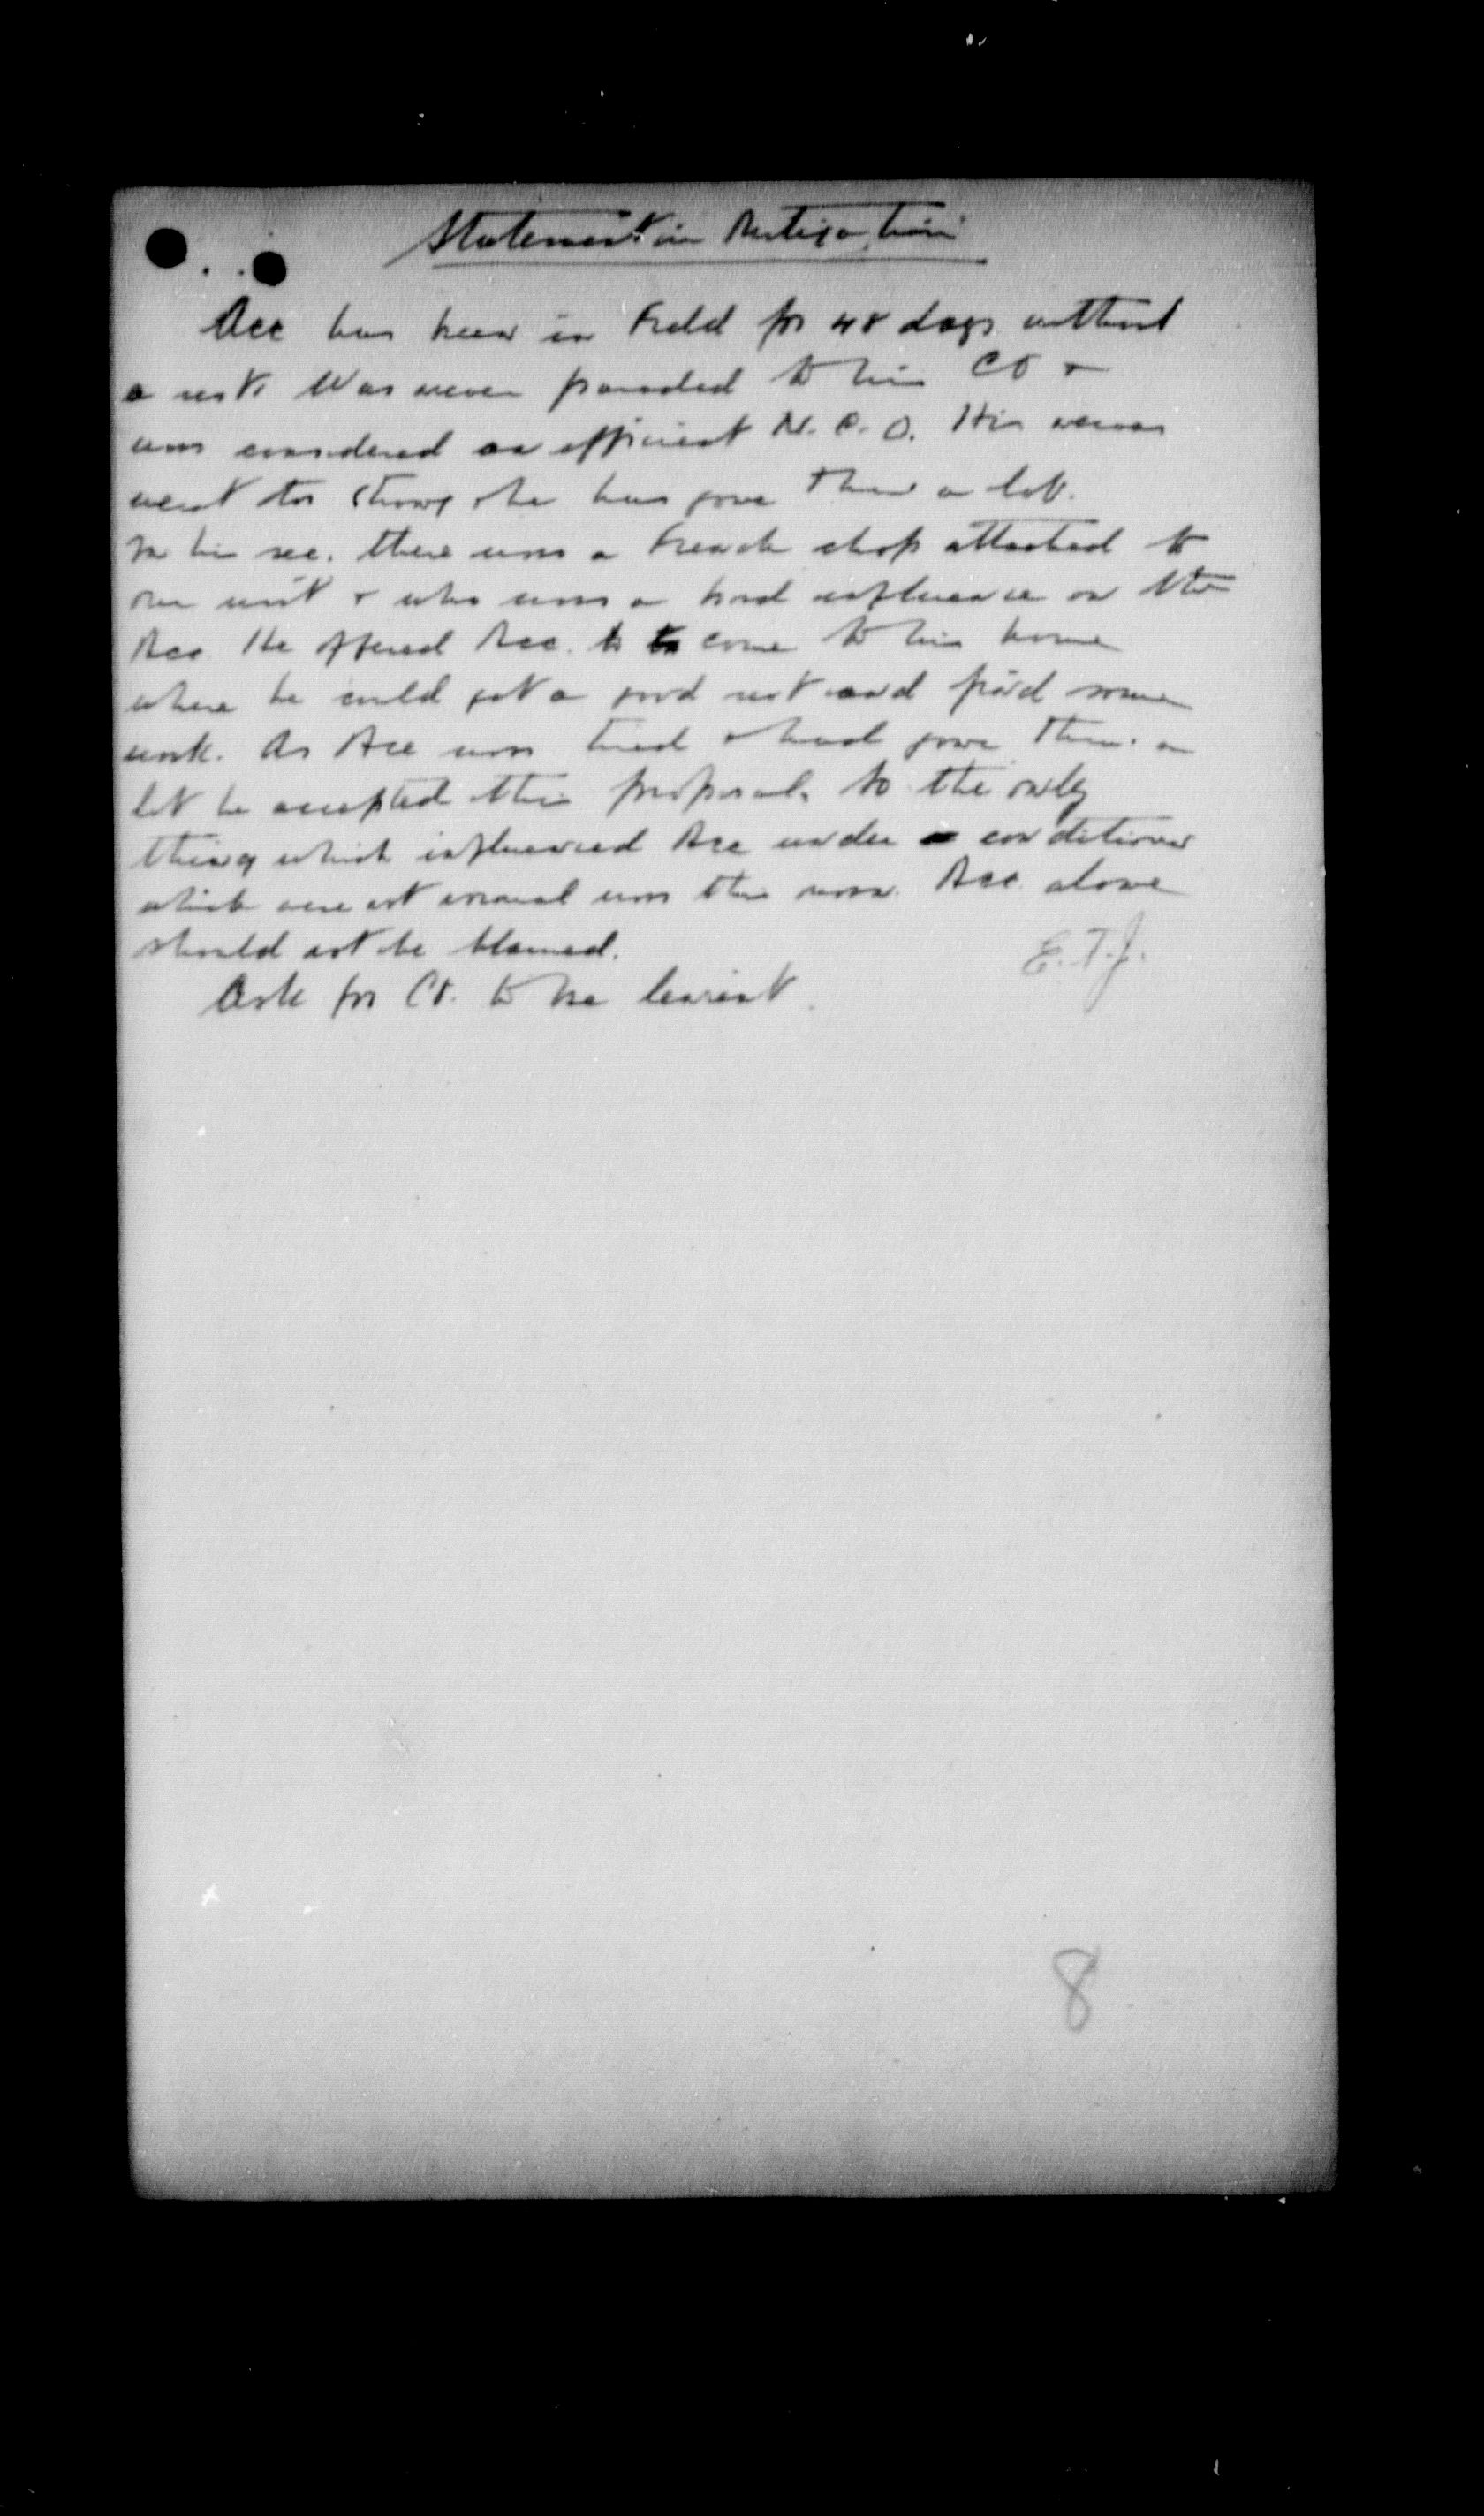 Statement in Mitigation
Acc has been in Field for 48 days without
a rest. Was never paraded to his CO &
was considered an efficient N.C.O. His nerves
went too strong & he has gone thru a lot.
In his sec. there was a French chap attached to
our unit & who was a bad influence on the
Acc. He offered Acc. to come to his home
where he could get a good rest and find some
work. As Acc was tired & had gone thru a
lot he accepted this proposal. So the only
thing which influenced Acc under conditions
which were not normal was this man. Acc alone
should not be blamed.
E.T.J.
Ask for Ct. to be lenient.
8